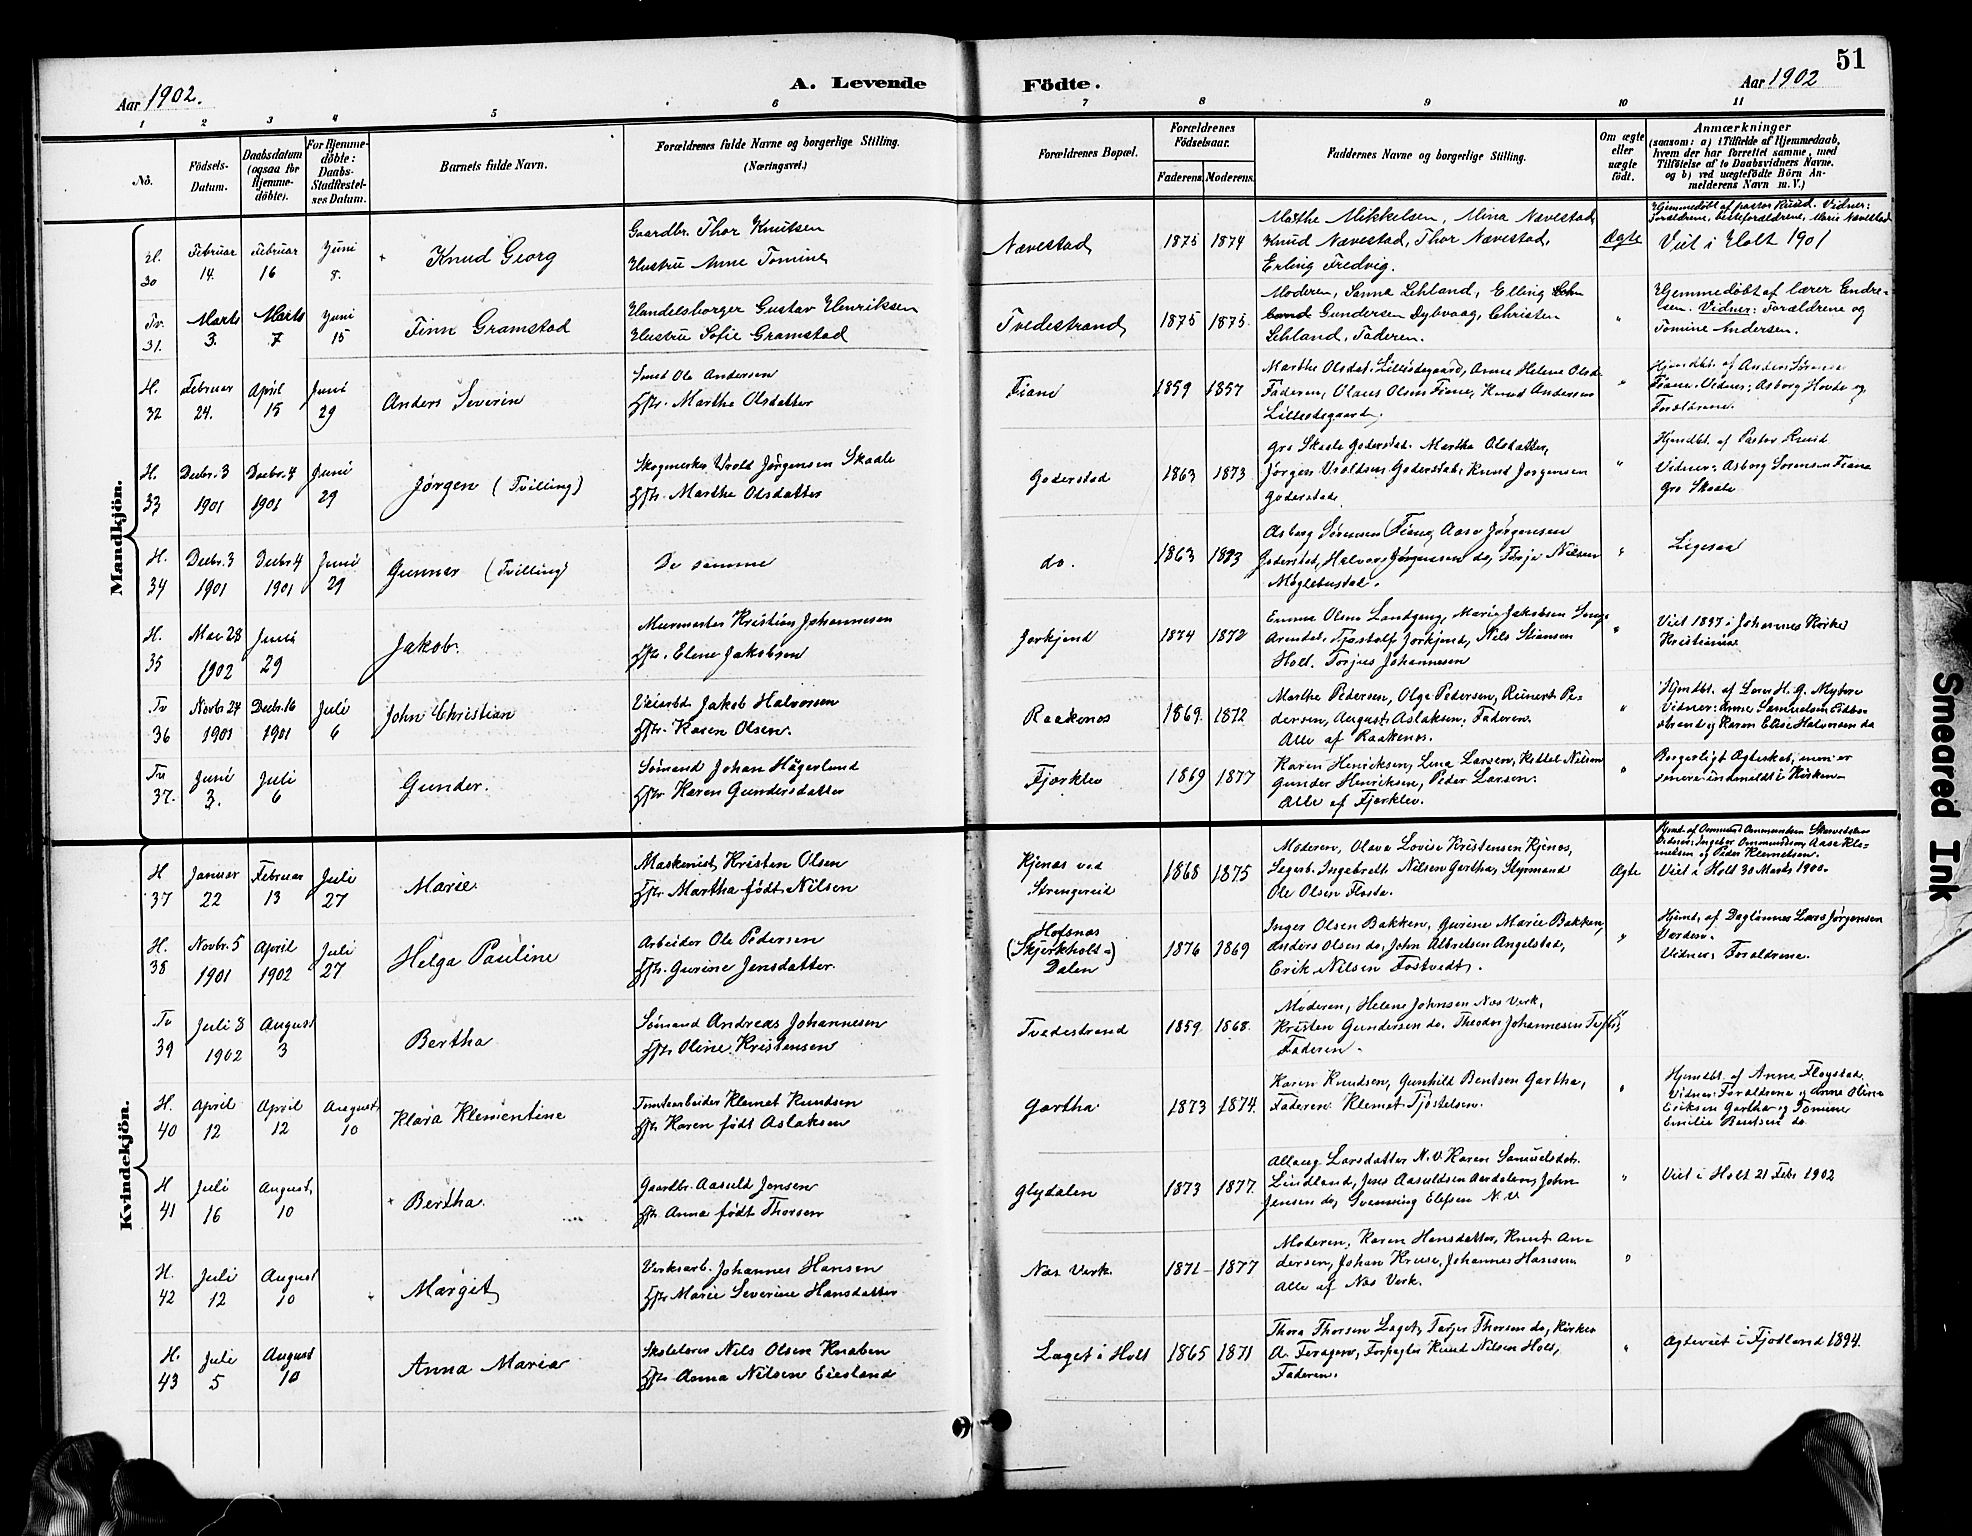 51
Aar 1902.
A. Levende
Födte.
Aar 1902
1 2 3 4 5 6 7 8 9 10 11
No.
Födsels-
Datum.
Daabsdatum
(ogsaa for
Hjemme-
döbte).
For Hjemme-
döbte:
Daabs-
Stadfæstel-
ses Datum.
Barnets fulde Navn.
Forældrenes fulde Navne og borgerlige Stilling.
(Næringsvei.)
Forældrenes Bopæl.
Forældrenes
Födselsaar.
Faderens Moderens.
Faddernes Navne og borgerlige Stilling.
Om ægte
eller
uægte
födt.
Anmærkninger
(saasom: a) i Tilfælde af Hjemmedaab,
hvem der har forrettet samme, med
Tilföielse af to Daabsvidners Navne,
og b) ved uægtefödte Börn An-
melderens Navn m. V.)
Mandkjön.
H. 30
Februar 14.
Februar 16
Juni 8.
Knud Georg
Gaardbr. Thor Knutsen
Hustru Anne Tomine
Nævestad
1875 1874
Mathe Mikkelsen, Mina Nævestad,
Knud Nævestad, Thor Nævestad,
Erling Fredvig.
Ægte
Hjemmedøbt af pastor Ruud. Vidner:
Forældrene, bedsteforældrene, Marie Nævestad
Viet i Holt 1901
Tv. 31.
Marts 3.
Marts 7
Juni 15
Finn Gramstad
Handelsborger Gustav Henriksen
Hustru Sofie Gramstad
Tvedestrand
1875 1875.
Moderen, Sanna Lehland, Elling
Gundersen Dybvaag, Christen
Lehland, Faderen.
"
Hjemmedøbt af lærer Endre-
sen. Vidner: Forældrene og
Tomine Andersen.
H. 32
Februar 24.
April 15
Juni 29
Anders Severin
Smed Ole Andersen
Hstr. Marthe Olsdatter
Fiane
1859 1857
Faderen, Olaus Olsen Fiane, Knud Andersen
"
Hjmdbt. af Anders Sørensen
Fiane. Vidner: Asborg Hovde og
Forældrene.
H. 33
Decbr. 3 1901
Decbr. 4 1901
Juni 29
Jørgen (Tvilling)
Jørgensen Skaale
Hstr. Marthe Olsdatter
Goderstad
1863 1873
Gro Skaale Goderstad. Martha Olsdatter,
Jørgen Vroldsen Goderstad, Knud Jørgensen
Goderstad
"
Hjmdbt. af Pastor Ruud
Vidner: Asborg Sørensen Fiane
Gro Skaale
H. 34
Decbr. 3 1901
Decbr. 4 1901
Juni 29
Gunnar (Tvilling)
De samme
do.
1863 1873
Asborg Sørensen Fiane, Aase Jørgensen
Goderstad, Halvor Jørgensen do, Terje Nilsen
Møglebustad.
"
Ligesaa
H. 35
Mai 28 1902
Juni 29
Jakob.
Murmester Kristian Johannesen
Hstr. Elene Jakobsen
Jorkjend
1874 1872
Arendal, Tjøstolf Jorkjend, Nils Stiansen
Holt. Torjus Johannesen
"
Viet 1897 i Johannes Kirke
Kristiania
Tv 36
Novbr. 27 1901
Decbr. 16 1901
Juli 6
John Christian
Veiarbd. Jakob Halvorsen
Hstr. Karen Olsen.
Raakenes
1869. 1872
Marthe Pedersen, Olga Pedersen, Reinert Pe-
dersen, August Aslaksen, Faderen.
Alle af Raakenes.
"
Hjmdbt. af Lærer H. G. Myhre
Vidner: Anne Samuelsen Eidbo-
strand og Karen Elise Halvorsen do
Tv 37.
Juni 3.
Juli 6
Gunder.
Sømand Johan Hägerlund
Hstr Karen Gundersdatter
Fjærklev
1869 1877
Karen Henriksen, Lina Larsen, Kittel Nilsen
Gunder Henriksen, Peder Larsen.
Alle af Fjærklev.
"
Borgerligt Ægteskab, men er
senere indmeldt i Kirken
Kvindekjön.
H 37
Januar 22
Februar 13
Juli 27
Marie
Maskinist Kristen Olsen
Hstr. Martha født Nilsen
Kjenæs ved
Strengereid
1868 1875
Moderen, Olava Lovise Kristensen Kjenæs,
Ingebrelt Nilsen Gartha, Styrmand
Ole Olsen Flosta.
Ægte
Hjmd. af Ommund Ommundsen
Vidner: Ingebor Ommundsen, Aase Kle-
metsen og Peder Klemetsen.
Viet i Holt 30 Marts 1900.
H. 38
Novbr. 5 1901
April 1902
Juli 27
Helga Pauline
Arbeider Ole Pedersen
Hstr. Gurine Jensdatter.
Hofsnæs
(Skjerkholt
Dalen
1876 1869
Inger Olsen Bakken, Gurine Marie Bakken,
Anders Olsen do, John Albretsen Angelstad,
Erik Nilsen Fostvedt.
"
Hjmd. af Daglønnes Lars Jørgensen
Vidner: Forældrene.
Tv 39
Juli 8 1902
August 3
Bertha
Sømand Andreas Johannesen
Hstr Oline Kristensen
Tvedestrand
1859. 1868.
Moderen, Helene Johnsen Næs Verk,
Kristen Gundersen do. Theodor Johannesen
Faderen.
"
H. 40
April 12
April 12
August 10
Klara Klementine
Tomtearbeider Klemet Knudsen
Hstr. Karen født Aslaksen
Gartha
1873 1874.
Karen Knudsen, Gunhild Bentsen Gartha,
Faderen. Klemet Tjøstelsen.
"
Hjmdbt. af Anne Fløystad.
Vidner: Forældrene og Anne Oline
Eriksen Gartha og Tomine
Emilie Bentsen do
H 41
Juli 16
August 10
Bertha.
Gaardbr. Aasuld Jensen
Hstr. Anna født Thorsen
Glydalen
1873 1877.
Allaug Larsdatter N.V. Karen Samuelsdat.
Lindland, Jens Aasuldsen Aardalen, John
Jensen do, Svenning Elefsen N.V
"
Viet i Holt 21 Feb. 1902
H. 42
Juli 12
August 10
Margit
Verksarb. Johannes Hansen
Hstr Marie Severine Hansdatter
Næs Verk.
1871 1877
Moderen, Karen Hansdatter, Knut An-
dersen, Johan Kruse, Johannes Hansen
Alle af Næs Verk.
"
H. 43
Juli 5
August 10
Anna Maria
Skolelærer Nils Olsen Knaben
Hstr Anna Nilsen Eiesland
Laget i Holt
1865 1871
Thora Thorsen Laget, Terjer Thorsen do, Kirkes.
A. Feragen, Forpagter Knud Nilsen Holt,
Faderen.
"
Ægteviet i Fjotland 1894.
Smeared Ink